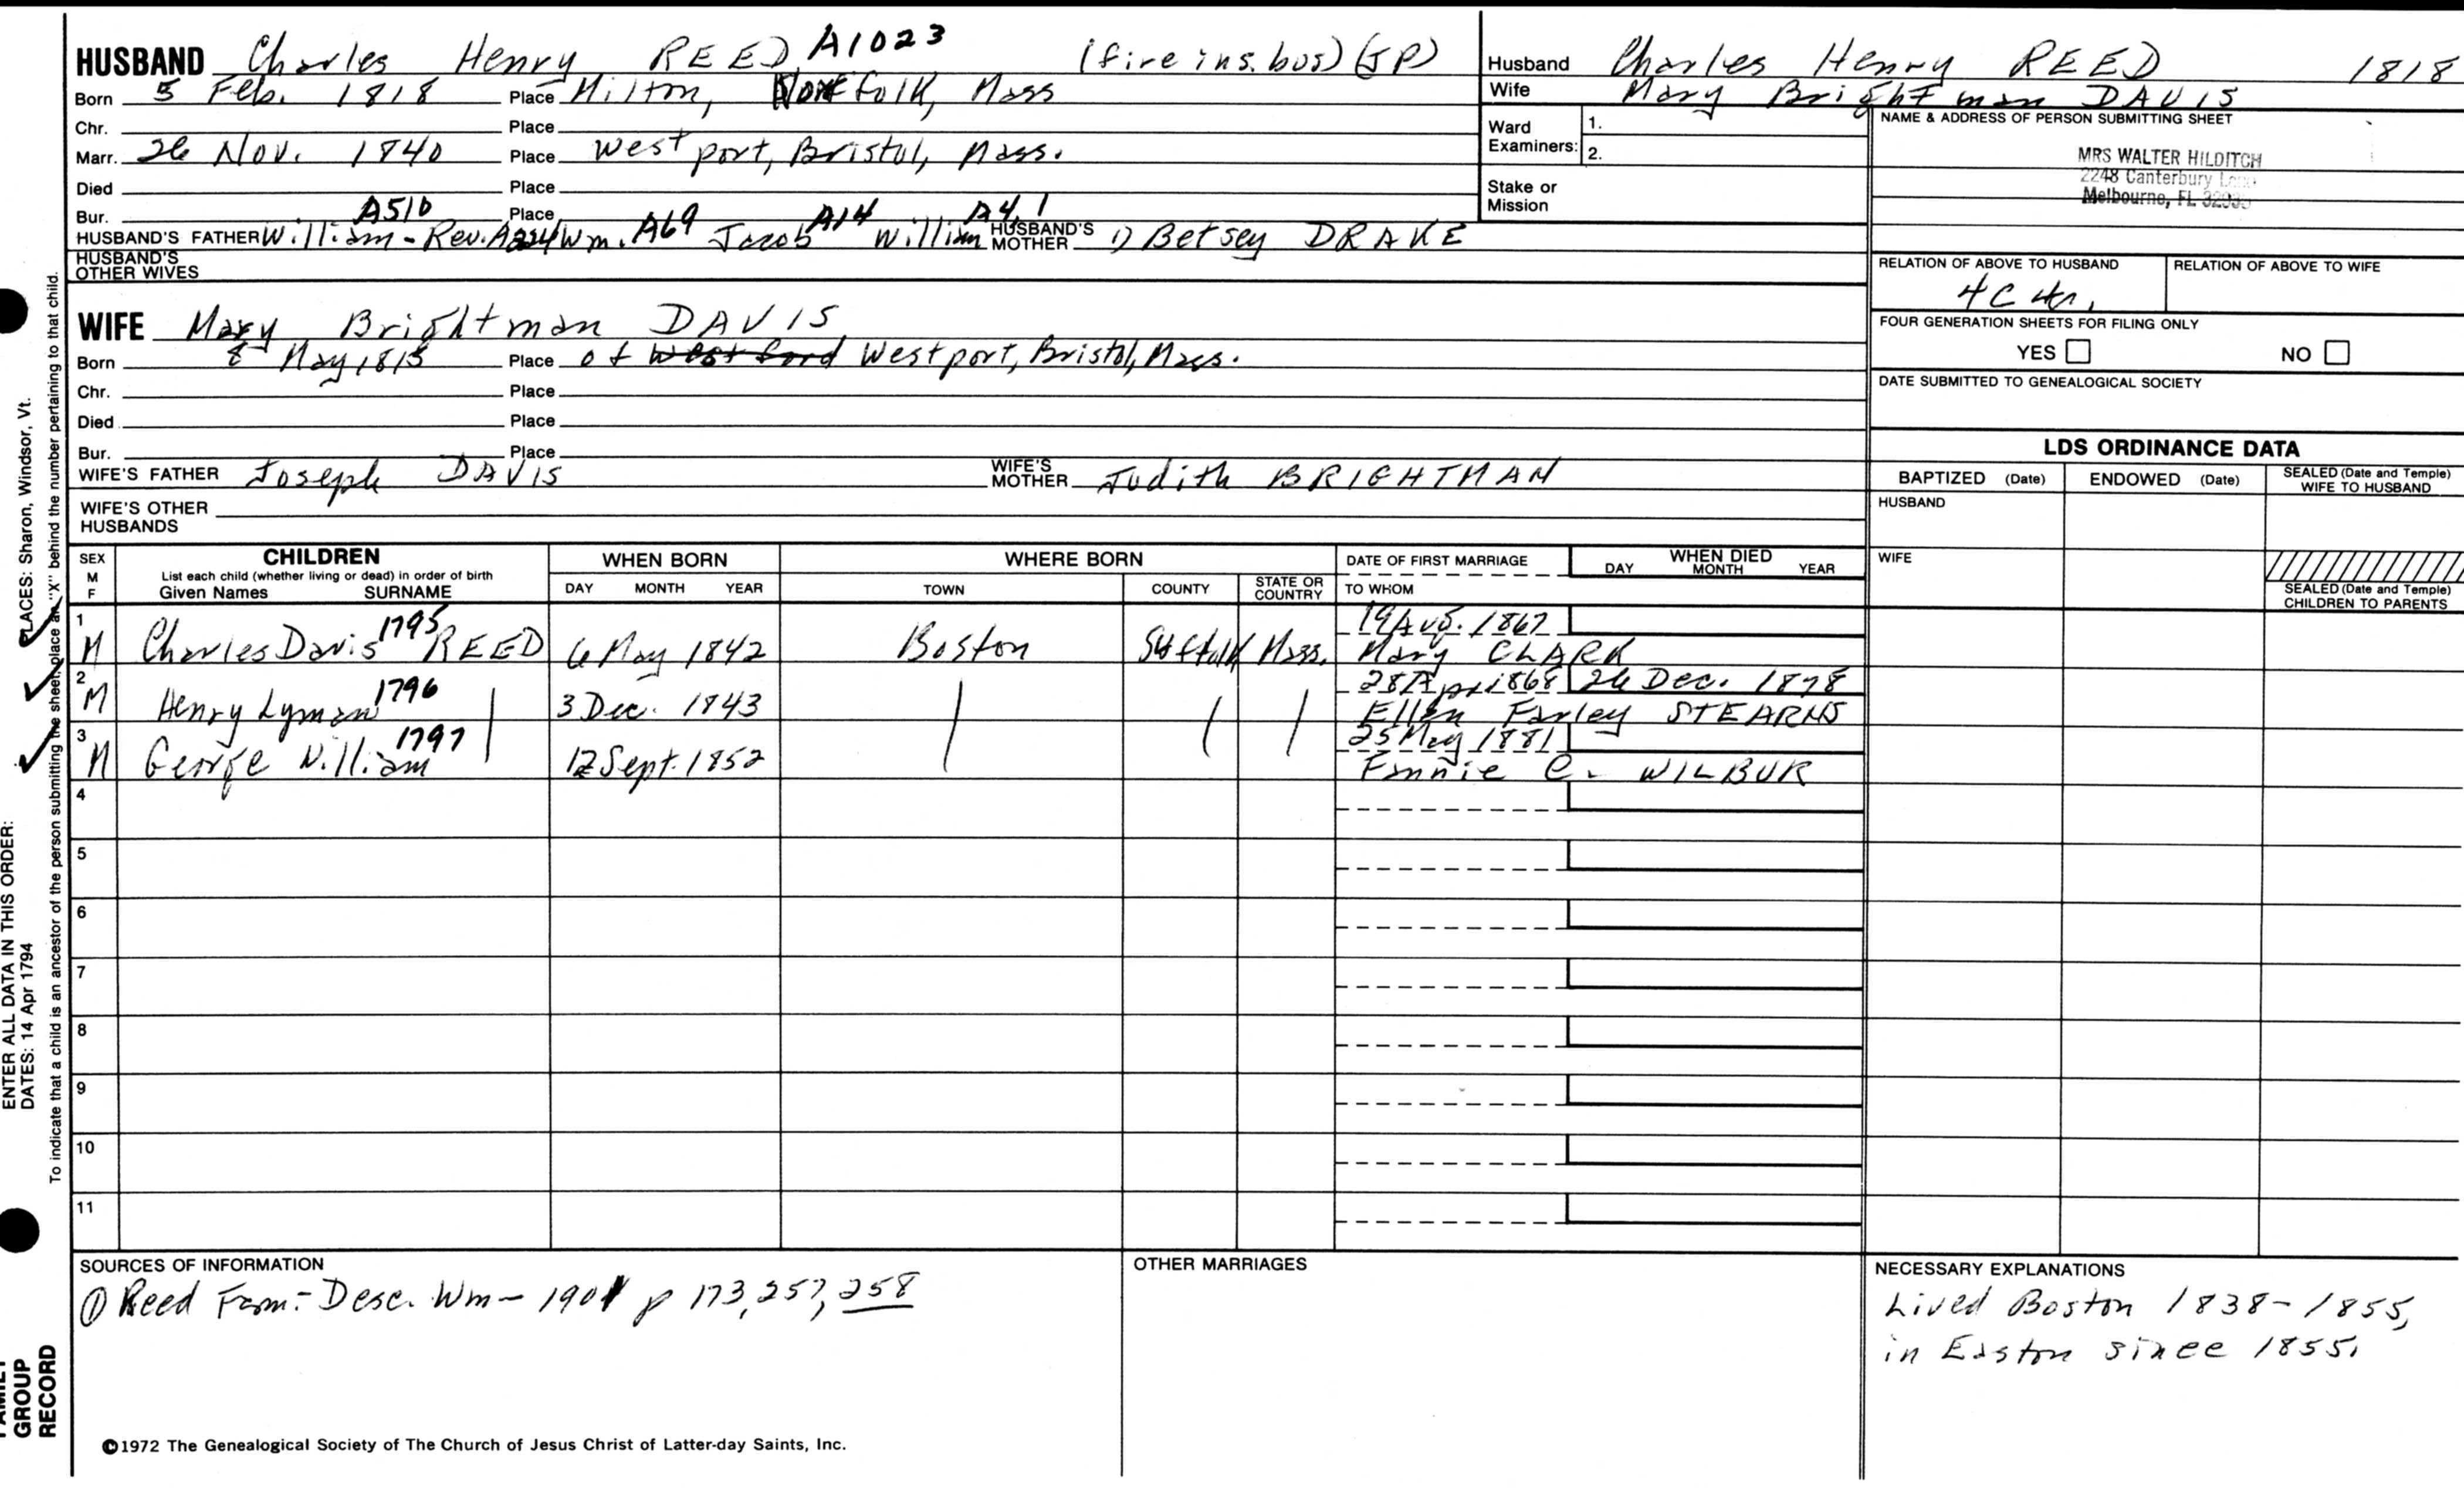 HUSBAND Charles Henry REED A1023 (fire ins. bus) (JP)
Born 5 Feb. 1818 Place Milton, Norfolk, Mass
Chr. Place
Marr. 26 Nov. 1840 Place Westport, Bristol, Mass.
Died Place
Bur. Place
A510 A69 A14 A4.1
HUSBAND'S FATHER William - Rev. Wm. Jacob William HUSBAND'S MOTHER 1) Betsey DRAKE
HUSBAND'S OTHER WIVES
WIFE Mary Brightman DAVIS
Born 8 May 1815 Place of Westford Westport, Bristol, Mass.
Chr. Place
Died Place
Bur. Place
WIFE'S FATHER Joseph DAVIS WIFE'S MOTHER Judith BRIGHTMAN
WIFE'S OTHER HUSBANDS
Husband Charles Henry REED 1818
Wife Mary Brightman DAVIS
Ward Examiners: 1.
2.
Stake or Mission
NAME & ADDRESS OF PERSON SUBMITTING SHEET
MRS WALTER HILDITCH
2248 Canterbury Lane
Melbourne, FL
RELATION OF ABOVE TO HUSBAND RELATION OF ABOVE TO WIFE
4C
FOUR GENERATION SHEETS FOR FILING ONLY
YES NO
DATE SUBMITTED TO GENEALOGICAL SOCIETY
LDS ORDINANCE DATA
BAPTIZED (Date) ENDOWED (Date) SEALED (Date and Temple) WIFE TO HUSBAND
HUSBAND
WIFE
SEALED (Date and Temple) CHILDREN TO PARENTS
SEX M F CHILDREN WHEN BORN WHERE BORN DATE OF FIRST MARRIAGE WHEN DIED
List each child (whether living or dead) in order of birth
Given Names SURNAME DAY MONTH YEAR TOWN COUNTY STATE OR COUNTRY TO WHOM DAY MONTH YEAR
1 M Charles Davis 1795 REED 6 May 1842 Boston Suffolk Mass. 19 Aug. 1867
Mary CLARK
2 M Henry Lyman 1796 3 Dec. 1843 28 Apr 1868 26 Dec. 1878
Ellen Farley STEARNS
3 M George William 1797 12 Sept. 1852 25 May 1881
Fannie C. WILBUR
4
5
6
7
8
9
10
11
SOURCES OF INFORMATION
① Reed Fam:- Desc. Wm - 1901 p 173, 257, 258
OTHER MARRIAGES
NECESSARY EXPLANATIONS
Lived Boston 1838-1855,
in Easton since 1855.
©1972 The Genealogical Society of The Church of Jesus Christ of Latter-day Saints, Inc.
ENTER ALL DATA IN THIS ORDER:
DATES: 14 Apr 1794 PLACES: Sharon, Windsor, Vt.
To indicate that a child is an ancestor of the person submitting the sheet, place an "X" behind the number pertaining to that child.
FAMILY
GROUP
RECORD